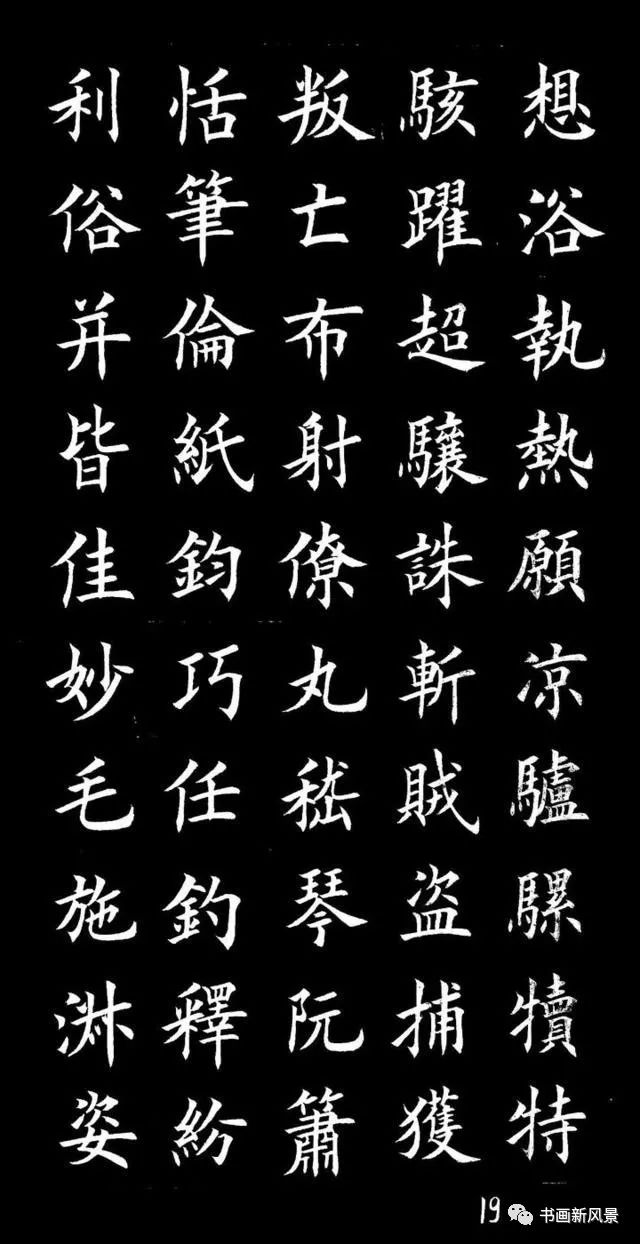 想浴執熱願凉驢騾犢特
駭躍超驤誅斬賊盜捕獲
叛亡布射僚丸嵇琴阮簫
恬筆倫紙鈞巧任釣釋紛
利俗并皆佳妙毛施淋姿
19
书画新风景